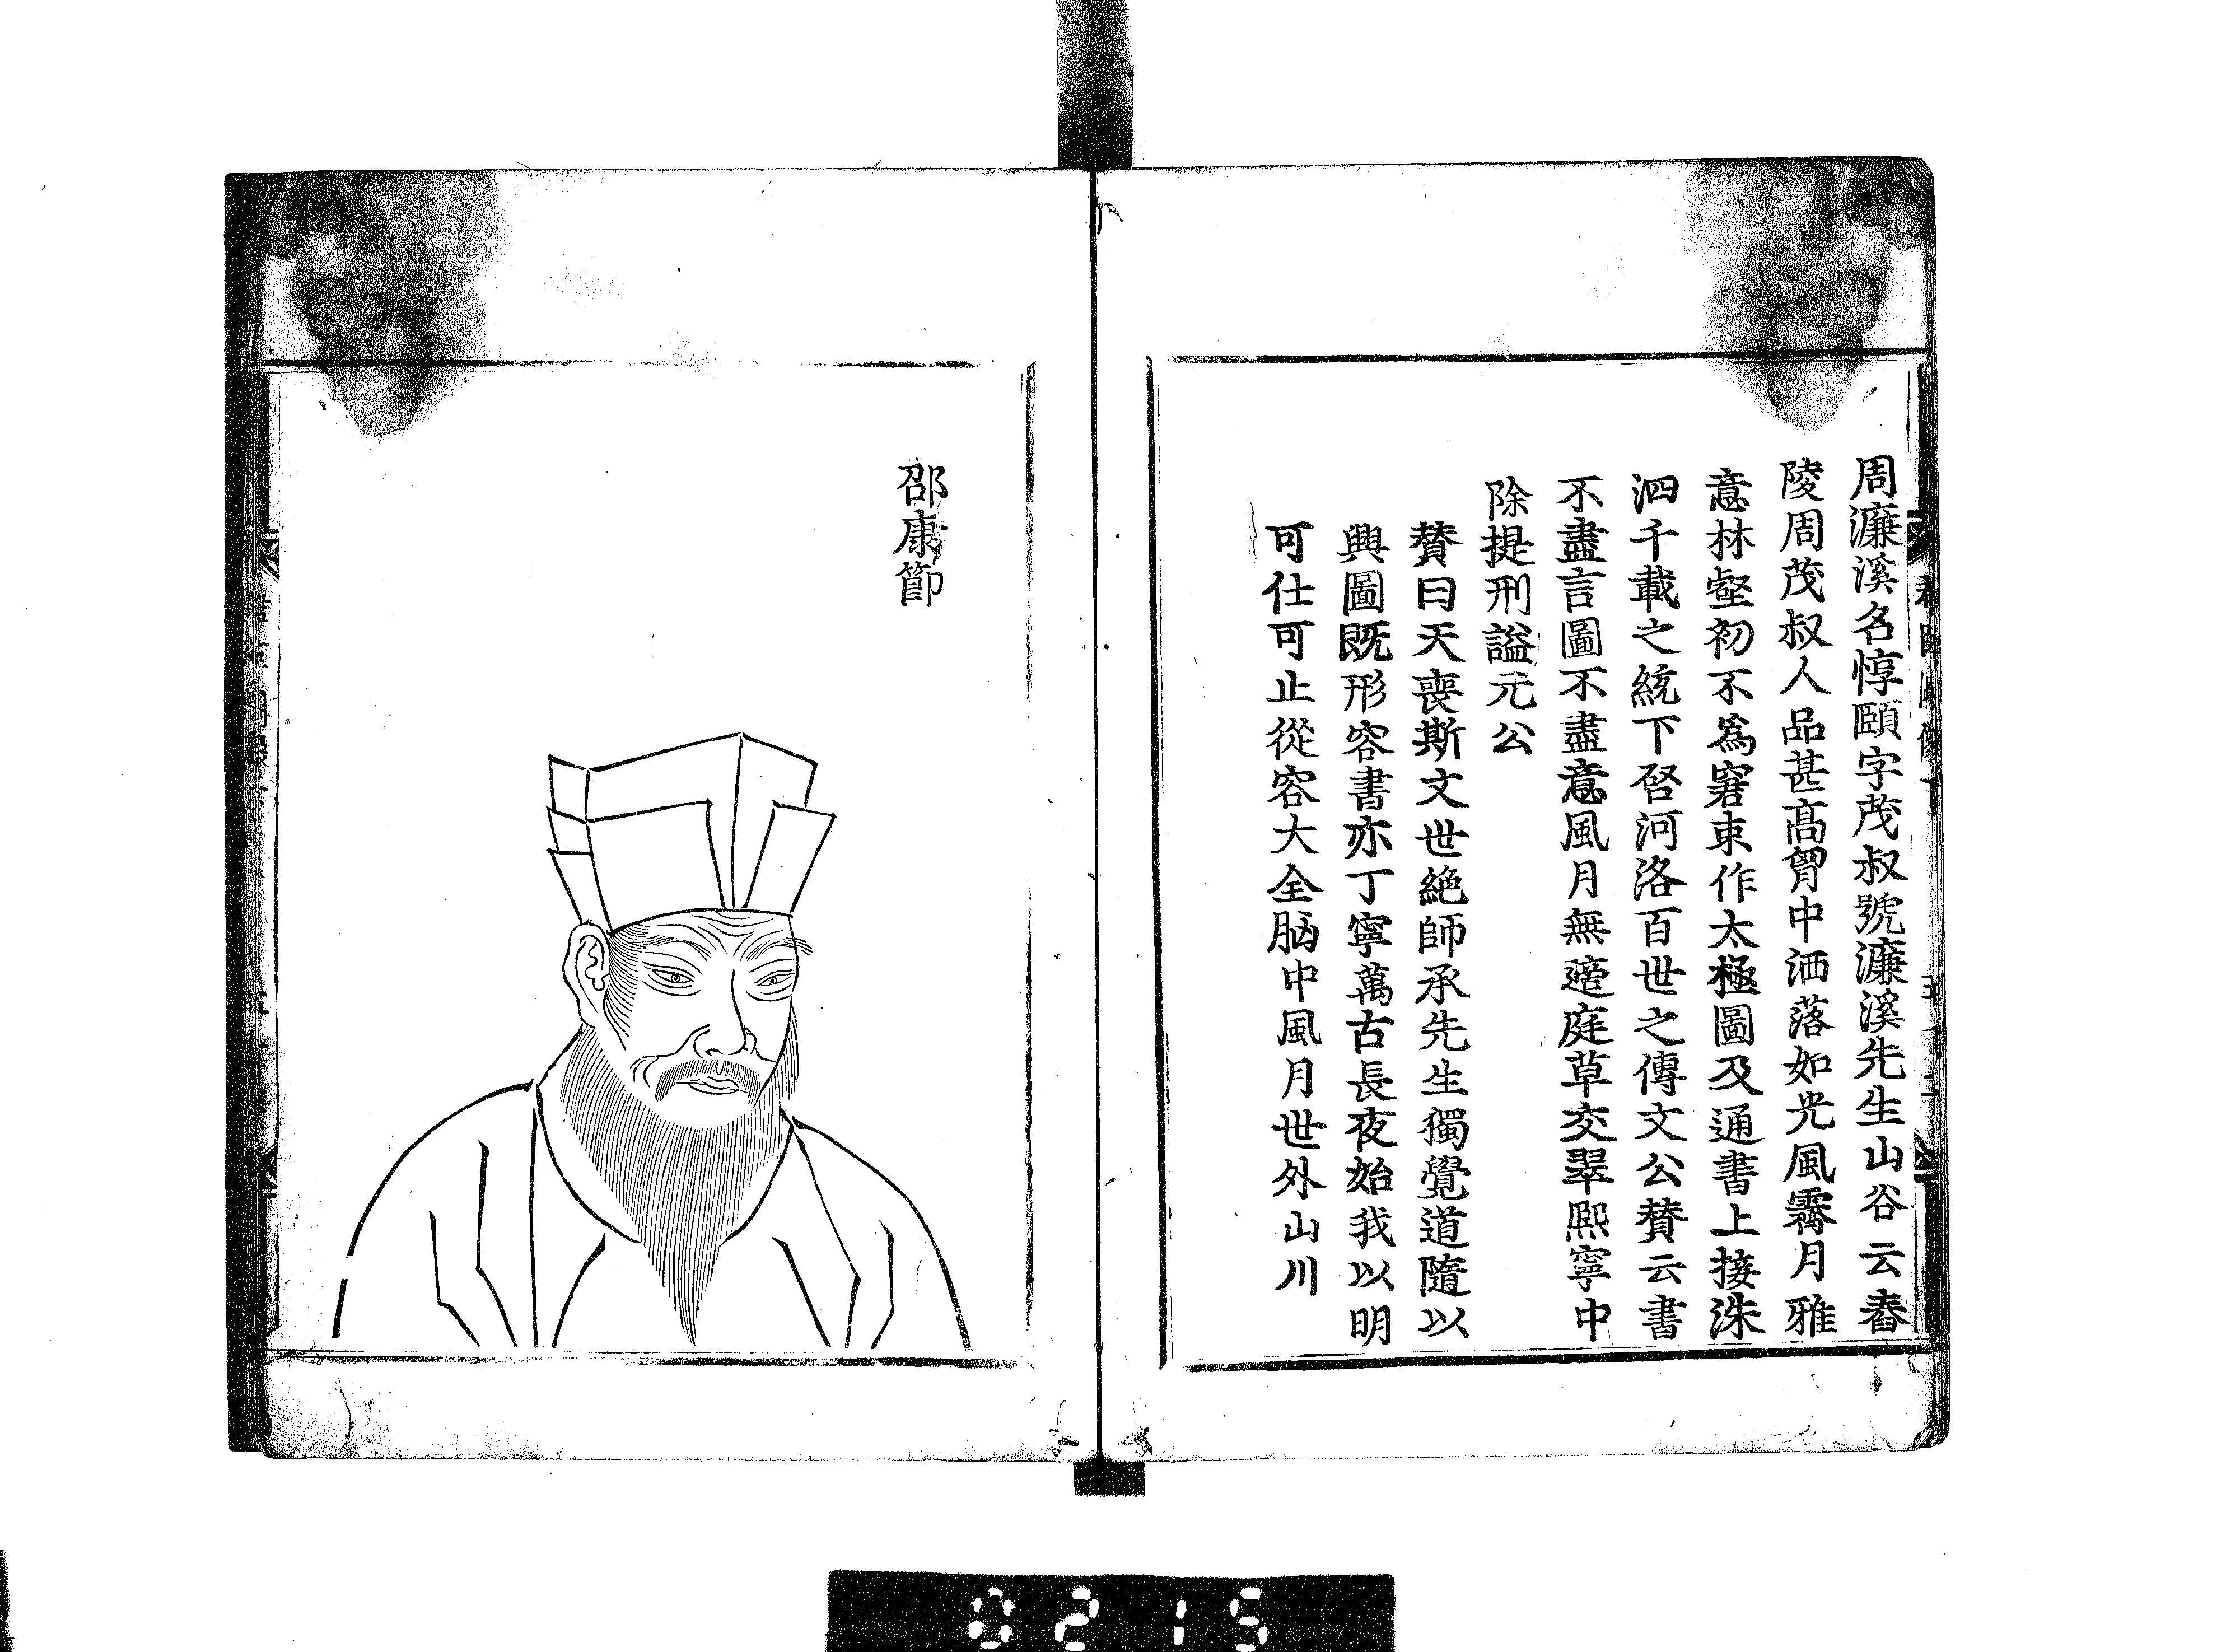 周濂溪名惇頤字茂叔號濂溪先生山谷云舂
陵周茂叔人品甚髙胷中洒落如光風霽月雅
意林壑初不為窘束作太極圖及通書上接洙
泗千載之統下啓河洛百世之傳文公賛云書
不盡言圖不盡意風月無邊庭草交翠熈寧中
除提刑謚元公
賛曰天喪斯文世絶師承先生獨覺道隨以
興圖既形容書亦丁寧萬古長夜始我以明
可仕可止從容大全脳中風月世外山川
邵康節
0215